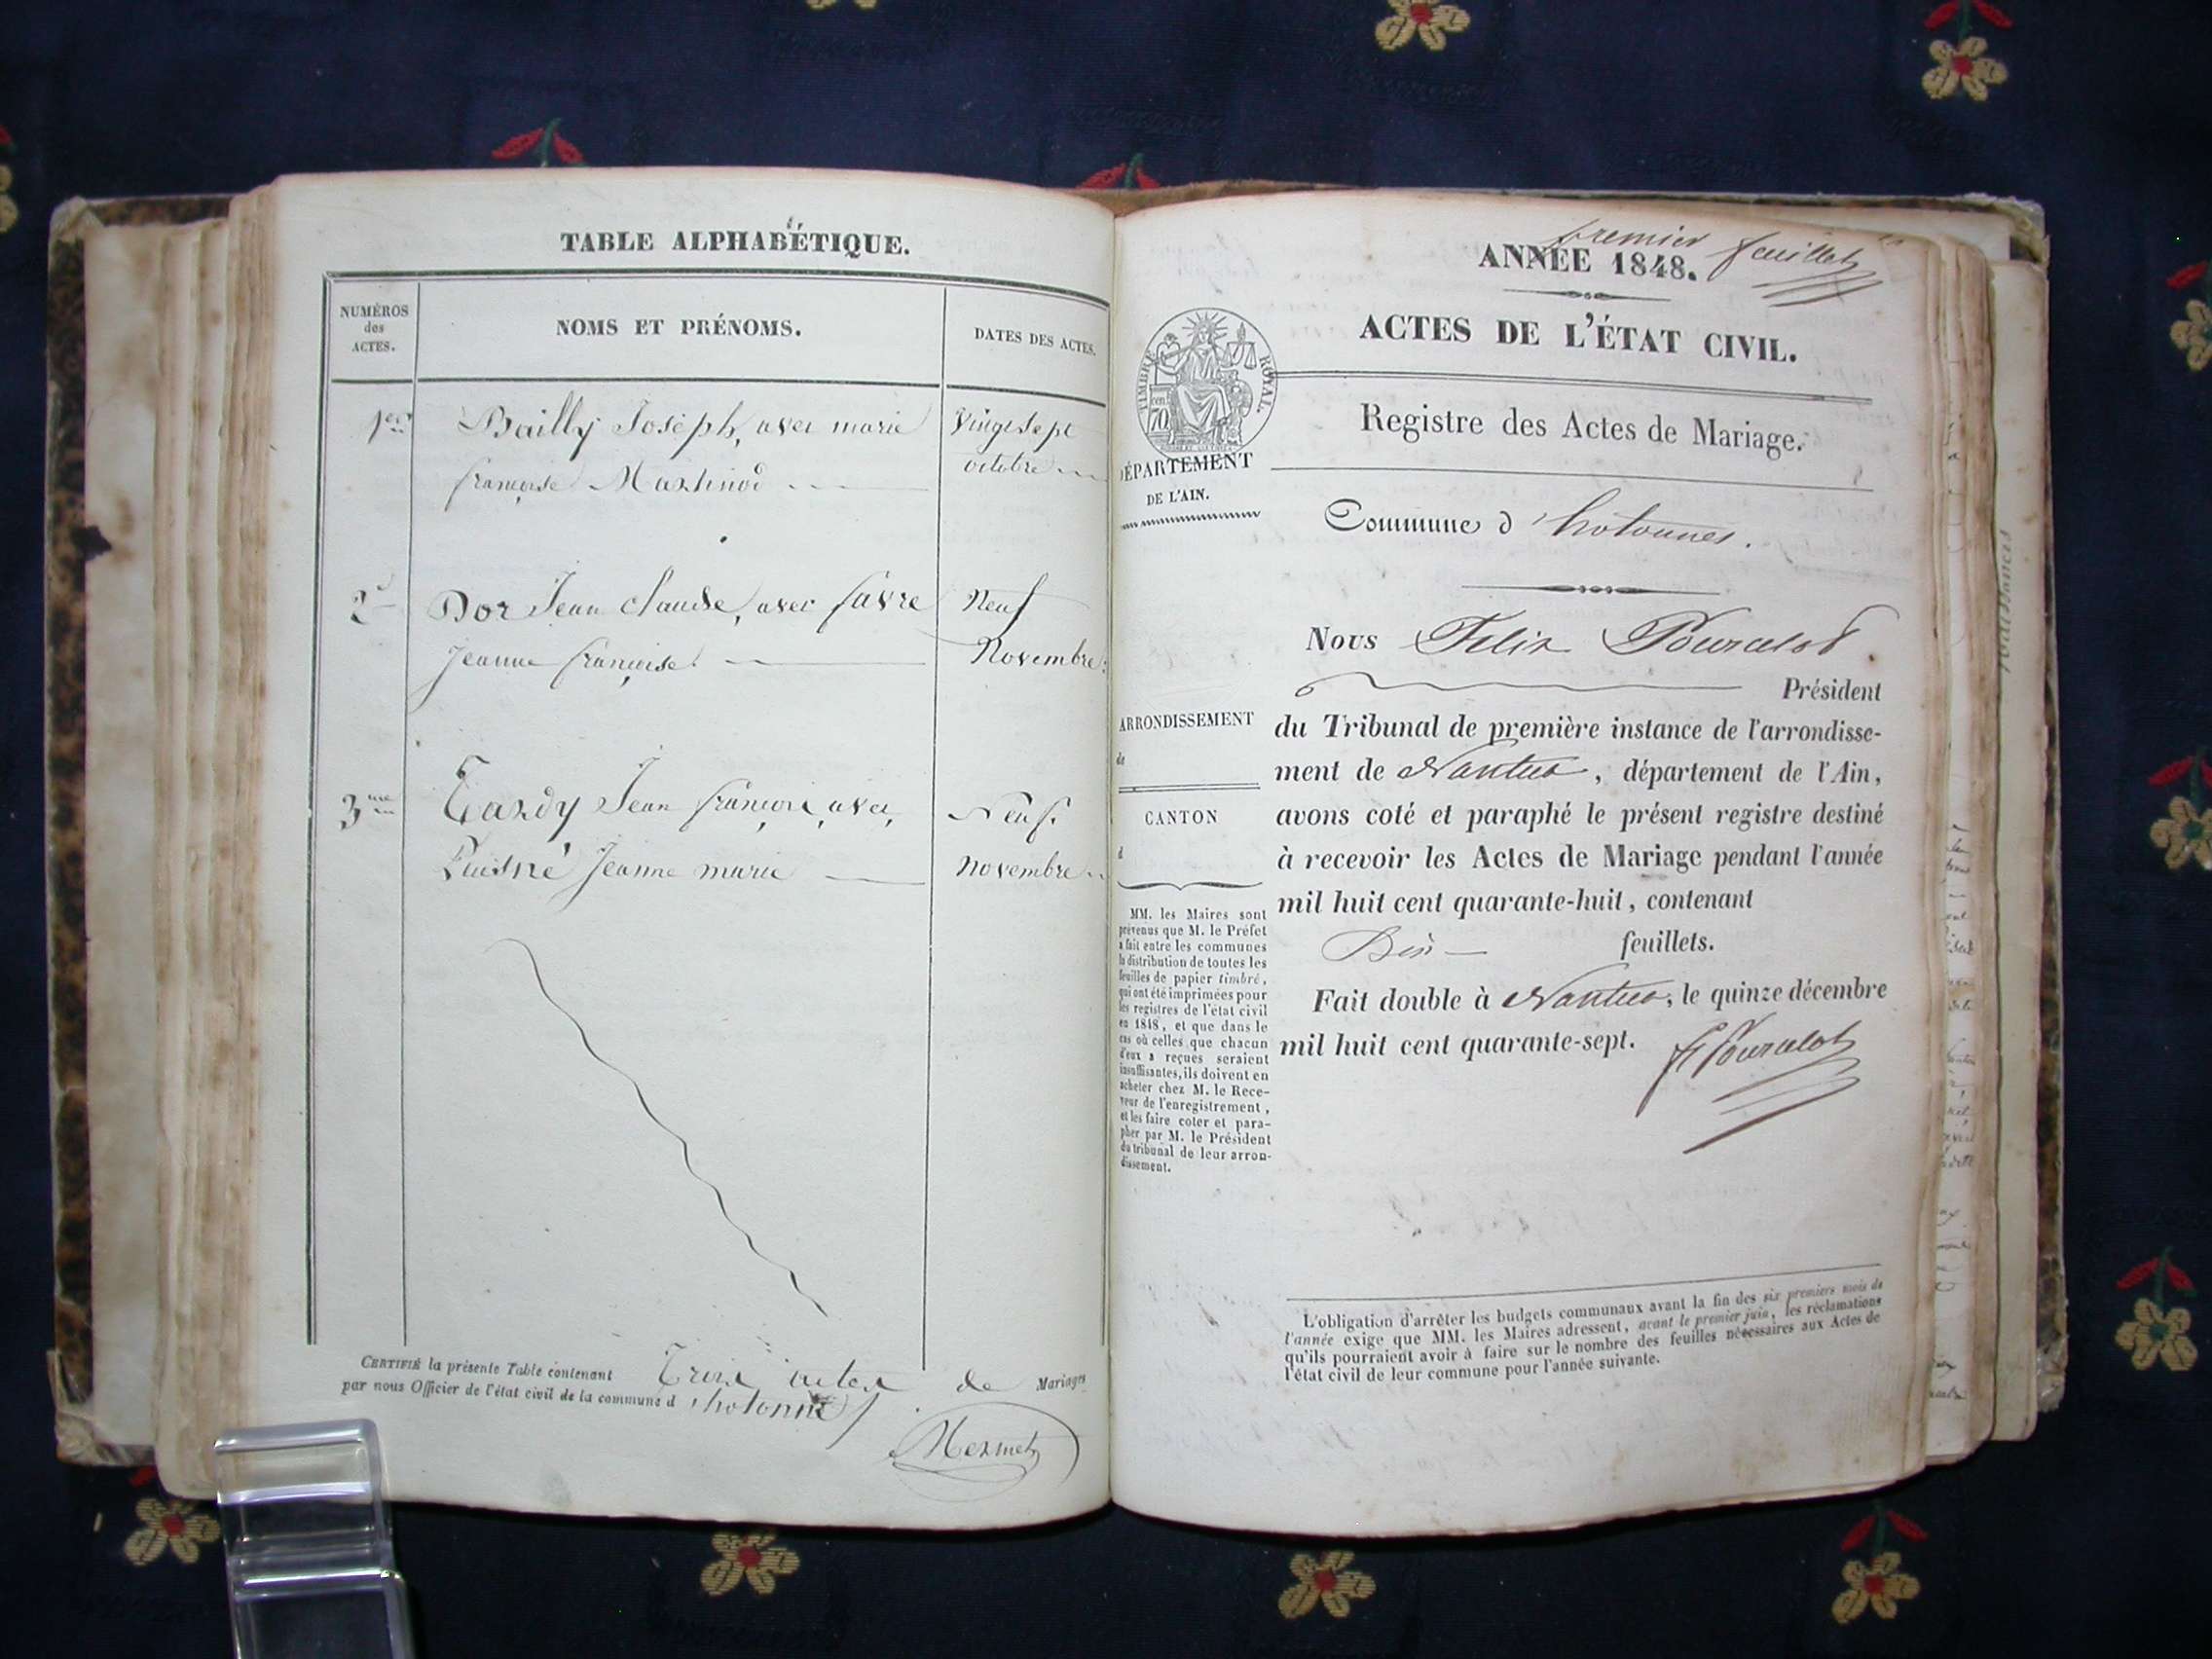 TABLE ALPHABÉTIQUE.
NUMÉROS
des
ACTES.
NOMS ET PRÉNOMS.
DATES DES ACTES.
1er
Bailly Joseph, avec marie
françoise Martinod
Vingt sept
octobre
2d
Dor Jean claude, avec favre
Jeanne françoise.
Neuf
Novembre
3me
Tardy Jean françois, avec,
Puisné Jeanne marie
Neuf.
novembre
CERTIFIÉ la présente Table contenant Trois actes de Mariages
par nous Officier de l'état civil de la commune d'hotonnes
Mermet
premier feuillet
ANNÉE 1848.
ACTES DE L'ÉTAT CIVIL.
TIMBRE ROYAL.
70
Registre des Actes de Mariage.
DÉPARTEMENT
DE L'AIN.
Commune d'hotonnes.
Nous Felix Pourcelot
Président
du Tribunal de première instance de l'arrondisse-
ment de Nantua, département de l'Ain,
avons coté et paraphé le présent registre destiné
à recevoir les Actes de Mariage pendant l'année
mil huit cent quarante-huit, contenant
Dix feuillets.
Fait double à Nantua, le quinze décembre
mil huit cent quarante-sept.
F Pourcelot
ARRONDISSEMENT
de
CANTON
d
MM. les Maires sont
prévenus que M. le Préfet
a fait entre les communes
la distribution de toutes les
feuilles de papier timbré,
qui ont été imprimées pour
les registres de l'état civil
en 1848, et que dans le
cas où celles que chacun
d'eux a reçues seraient
insuffisantes, ils doivent en
acheter chez M. le Rece-
veur de l'enregistrement,
et les faire coter et para-
pher par M. le Président
du tribunal de leur arron-
dissement.
L'obligation d'arrêter les budgets communaux avant la fin des six premiers mois de
l'année exige que MM. les Maires adressent, avant le premier juin, les réclamations
qu'ils pourraient avoir à faire sur le nombre des feuilles nécessaires aux Actes de
l'état civil de leur commune pour l'année suivante.